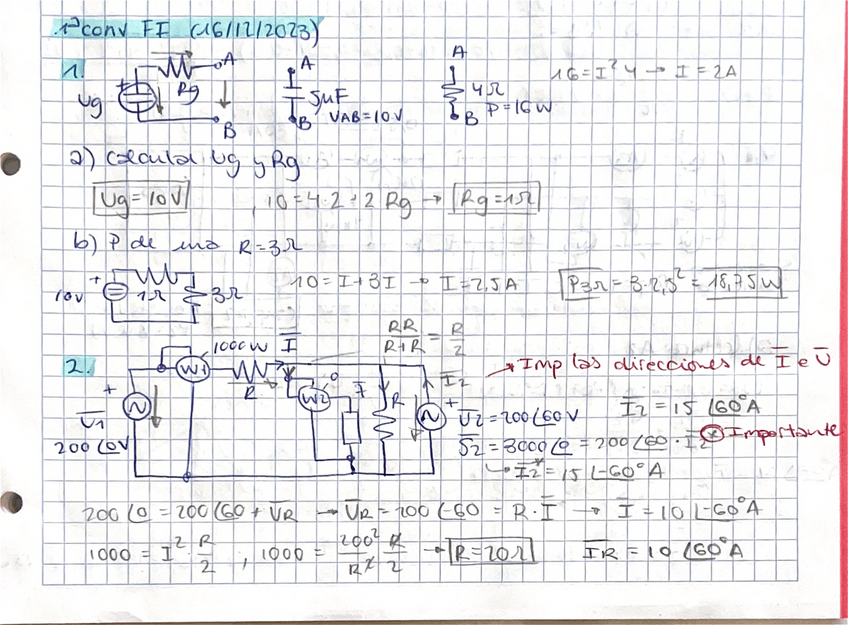 1ª conv FI (16/12/2023)
1.
A
Rg
Ug
B
A
5μF
VAB=10V
B
A
4Ω
P=16W
B
16=I²4 → I=2A
a) Calcula Ug y Rg
Ug=10V , 10=4·2+2Rg → Rg=1Ω
b) P de una R=3Ω
10V
1Ω
3Ω
10=I+3I → I=2,5A
P3Ω=3·2,5²=18,75W
2.
W1
1000W
I
RR/R+R = R/2
→ Imp las direcciones de I e U
R
W2
0
R
I2
U1
200∠0V
U2=200∠60V
I2=15∠60°A
S2=3000∠0=200∠60·I2* Importante
→ I2*=15∠-60°A
200∠0=200∠60+UR → UR=200∠-60=R·I → I=10∠-60°A
1000=I²·R/2 , 1000=200²/R²·R/2 → R=20Ω
IR=10∠60°A